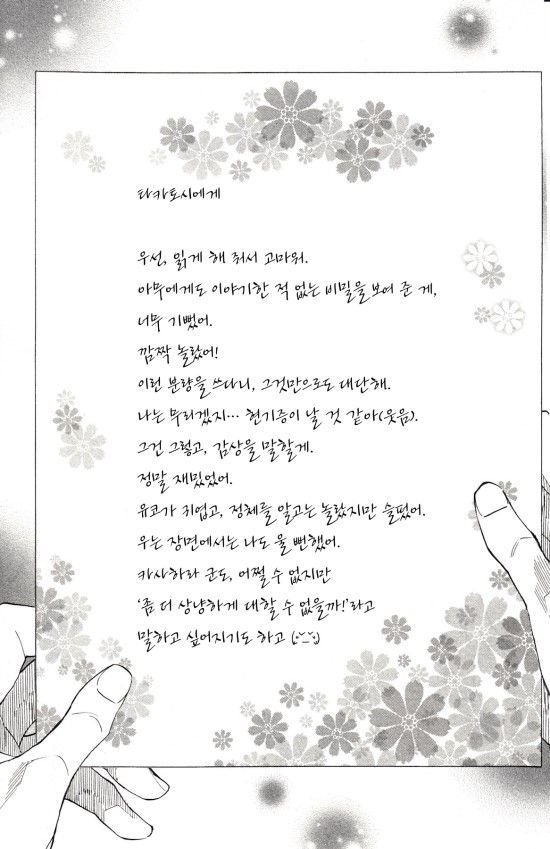 타카토시에게
우선, 읽게 해 줘서 고마워.
아무에게도 이야기한 적 없는 비밀을 보여 준 게,
너무 기뻤어.
깜짝 놀랐어!
이런 분량을 쓰다니, 그것만으로도 대단해.
나는 무리겠지… 현기증이 날 것 같아(웃음).
그건 그렇고, 감상을 말할게.
정말 재밌었어.
유코가 귀엽고, 정체를 알고는 놀랐지만 슬펐어.
우는 장면에서는 나도 울 뻔했어.
카사하라 군도, 어쩔 수 없지만
‘좀 더 상냥하게 대할 수 없을까!’라고
말하고 싶어지기도 하고